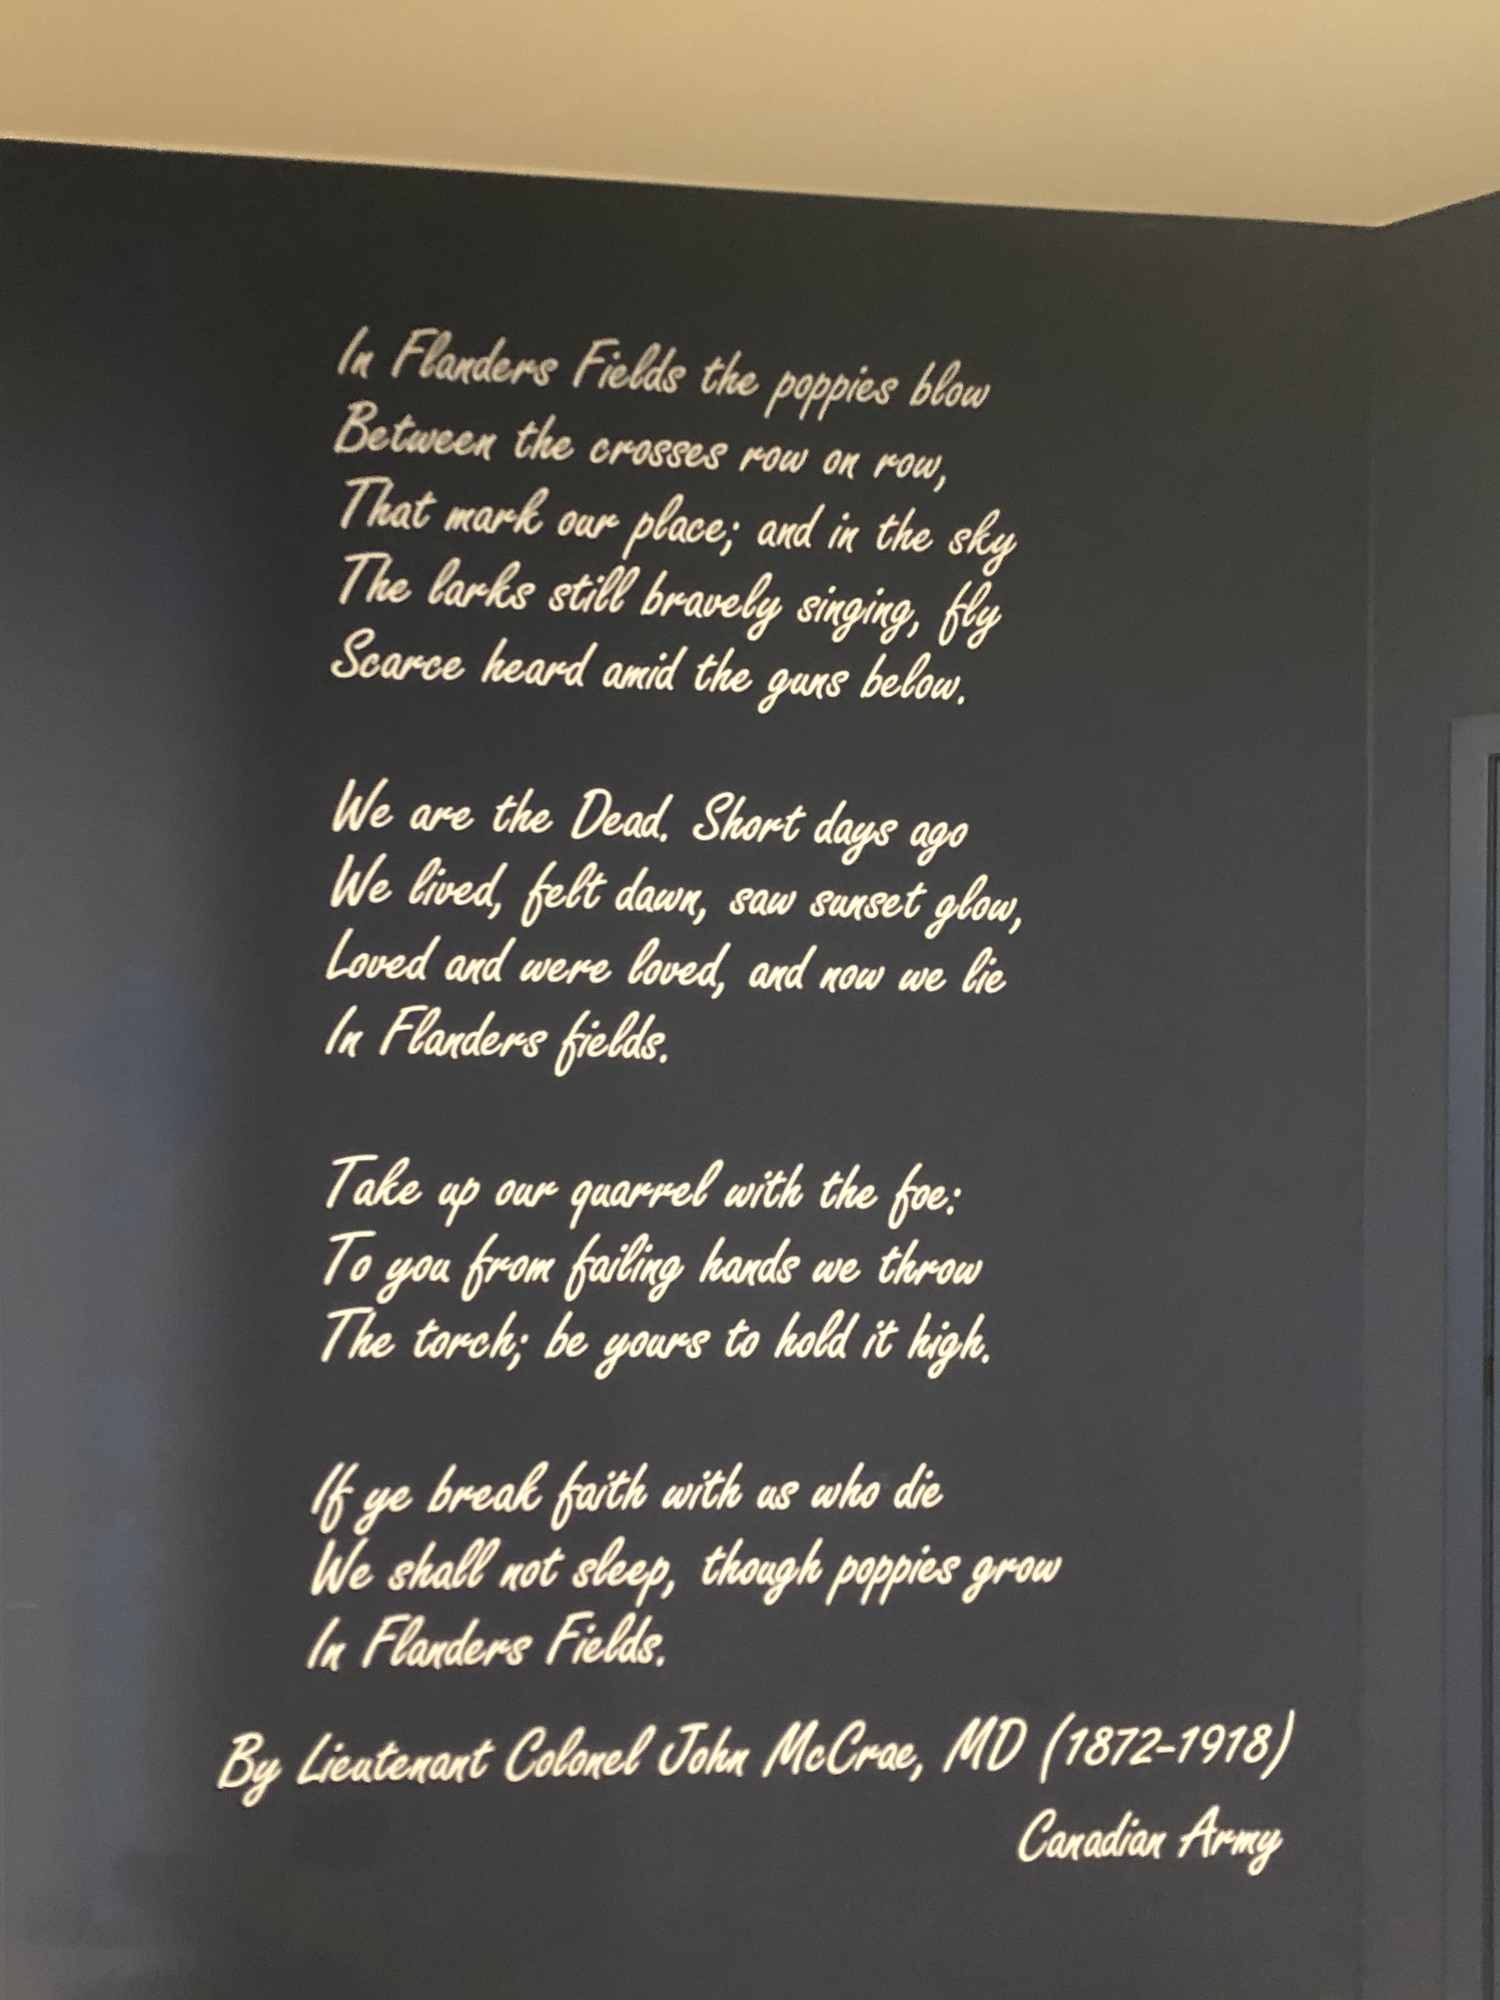 In Flanders Fields the poppies blow
Between the crosses row on row,
That mark our place; and in the sky
The larks still bravely singing, fly
Scarce heard amid the guns below.
We are the Dead. Short days ago
We lived, felt dawn, saw sunset glow,
Loved and were loved, and now we lie
In Flanders fields.
Take up our quarrel with the foe:
To you from failing hands we throw
The torch; be yours to hold it high.
If ye break faith with us who die
We shall not sleep, though poppies grow
In Flanders Fields.
By Lieutenant Colonel John McCrae, MD (1872-1918)
Canadian Army